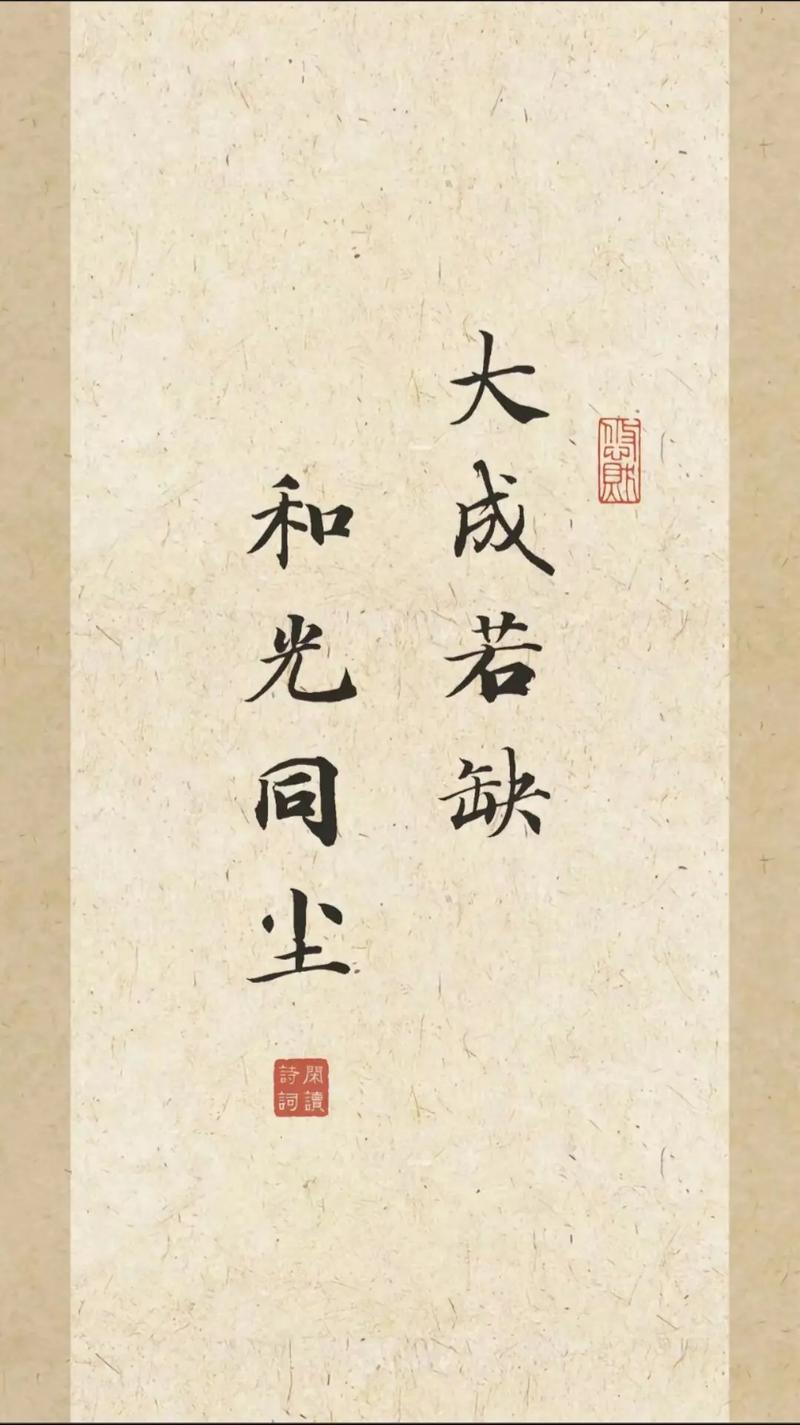 大成若缺
和光同尘
閑讀
詩詞